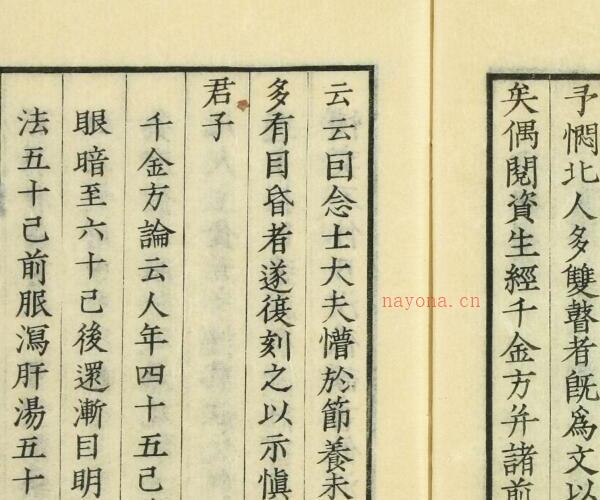 予憫北人多雙瞽者既爲文以
矣偶閱資生經千金方并諸前
云云因念士大夫懵於節養未
多有目昏者遂復刻之以示愼
君子
千金方論云人年四十五已
眼暗至六十已後還漸目明
法五十已前服瀉肝湯五十
nayona.cn